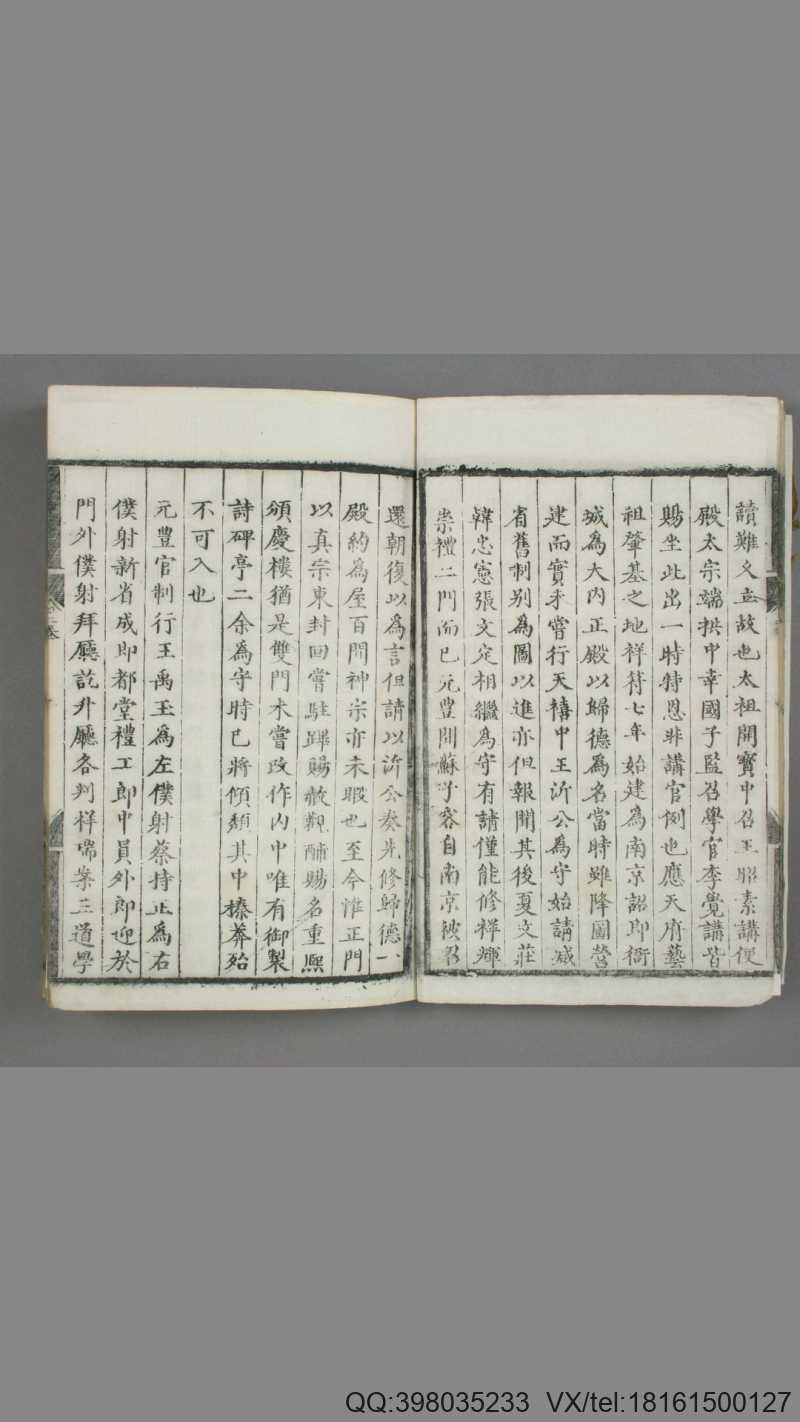 讀難又立故也太祖開寶中召王昭素講便
殿太宗端拱中幸國子監召學官李覺講皆
賜坐此出一時特恩非講官例也應天府藝
祖肇基之地祥符七年始建為南京詔即衙
城為大内正殿以歸德為名當時雖降圖營
建而實未嘗行天禧中王沂公為守始請減
省舊制别為圖以進亦但報聞其後夏文莊
韓忠憲張文定相繼為守有請僅能修祥輝
崇禮二門而已元豊間蘇子容自南京被召
還朝復以為言但請以沂公奏先修歸德一
殿約為屋百間神宗亦未暇也至今惟正門
以真宗東封回嘗駐蹕賜赦觀酺賜名重熙
頒慶樓猶是雙門未嘗改作内中唯有御製
詩碑亭二余為守時已將傾頽其中榛莽殆
不可入也
元豊官制行王禹玉為左僕射蔡持正為右
僕射新省成即都堂禮工郎中員外郎迎於
門外僕射拜廳訖升廳各判祥瑞案三道學
QQ:398035233 VX/tel:18161500127